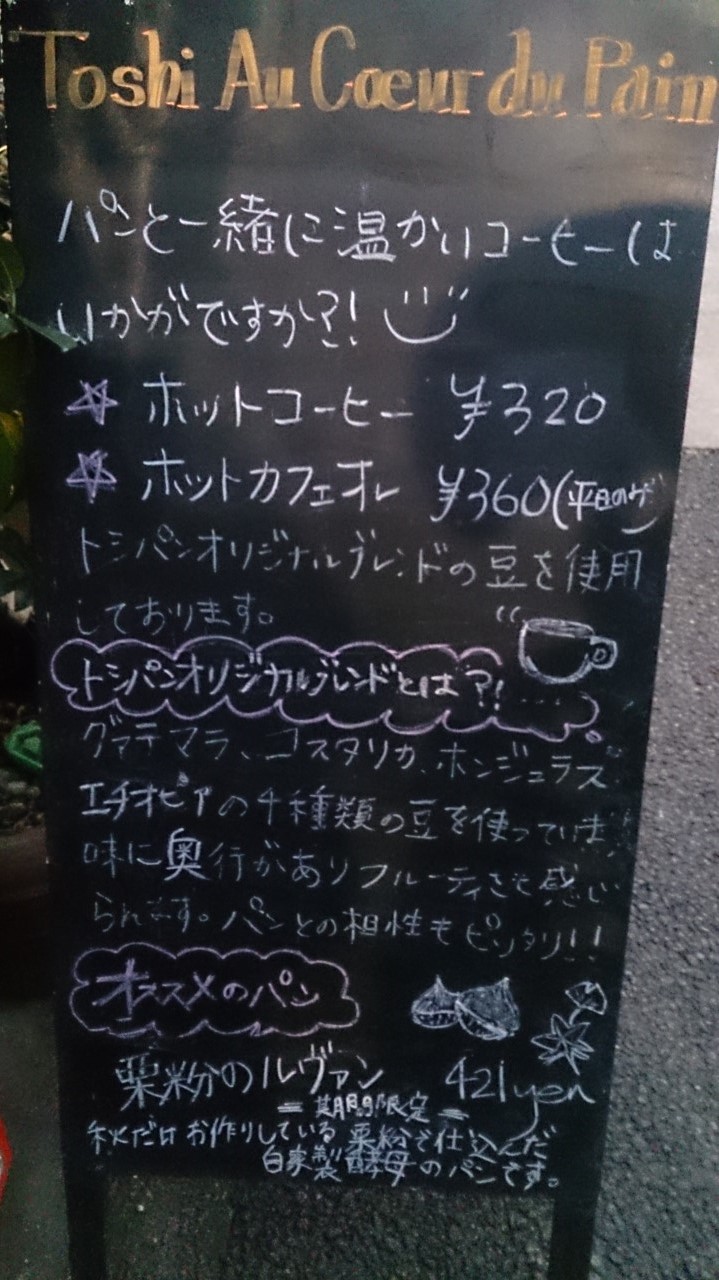 Toshi Au Cœur du Pain
パンと一緒に温かいコーヒーは
いかがですか?!
☆ ホットコーヒー ¥320
☆ ホットカフェオレ ¥360(平日のみ)
トシパンオリジナルブレンドの豆を使用
しております。
トシパンオリジナルブレンドとは?!....
グァテマラ、コスタリカ、ホンジュラス
エチオピアの4種類の豆を使っていま
味に奥行がありフルーティさを感じ
られます。パンとの相性もピッタリ!!
オススメのパン
栗粉のルヴァン 421yen
=期間限定=
秋だけお作りしている栗粉で仕込んだ
自家製酵母のパンです。